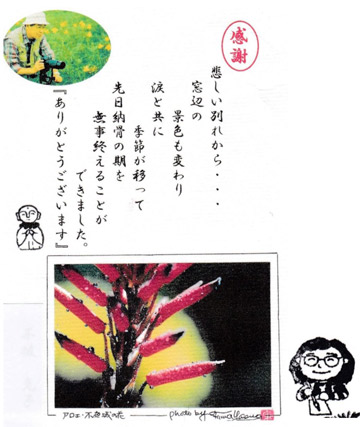 感謝
悲しい別れから・・・
窓辺の
景色も変わり
涙と共に
季節が移って
先日納骨の期を
無事終えることが
できました。
『ありがとうございます』
photo by